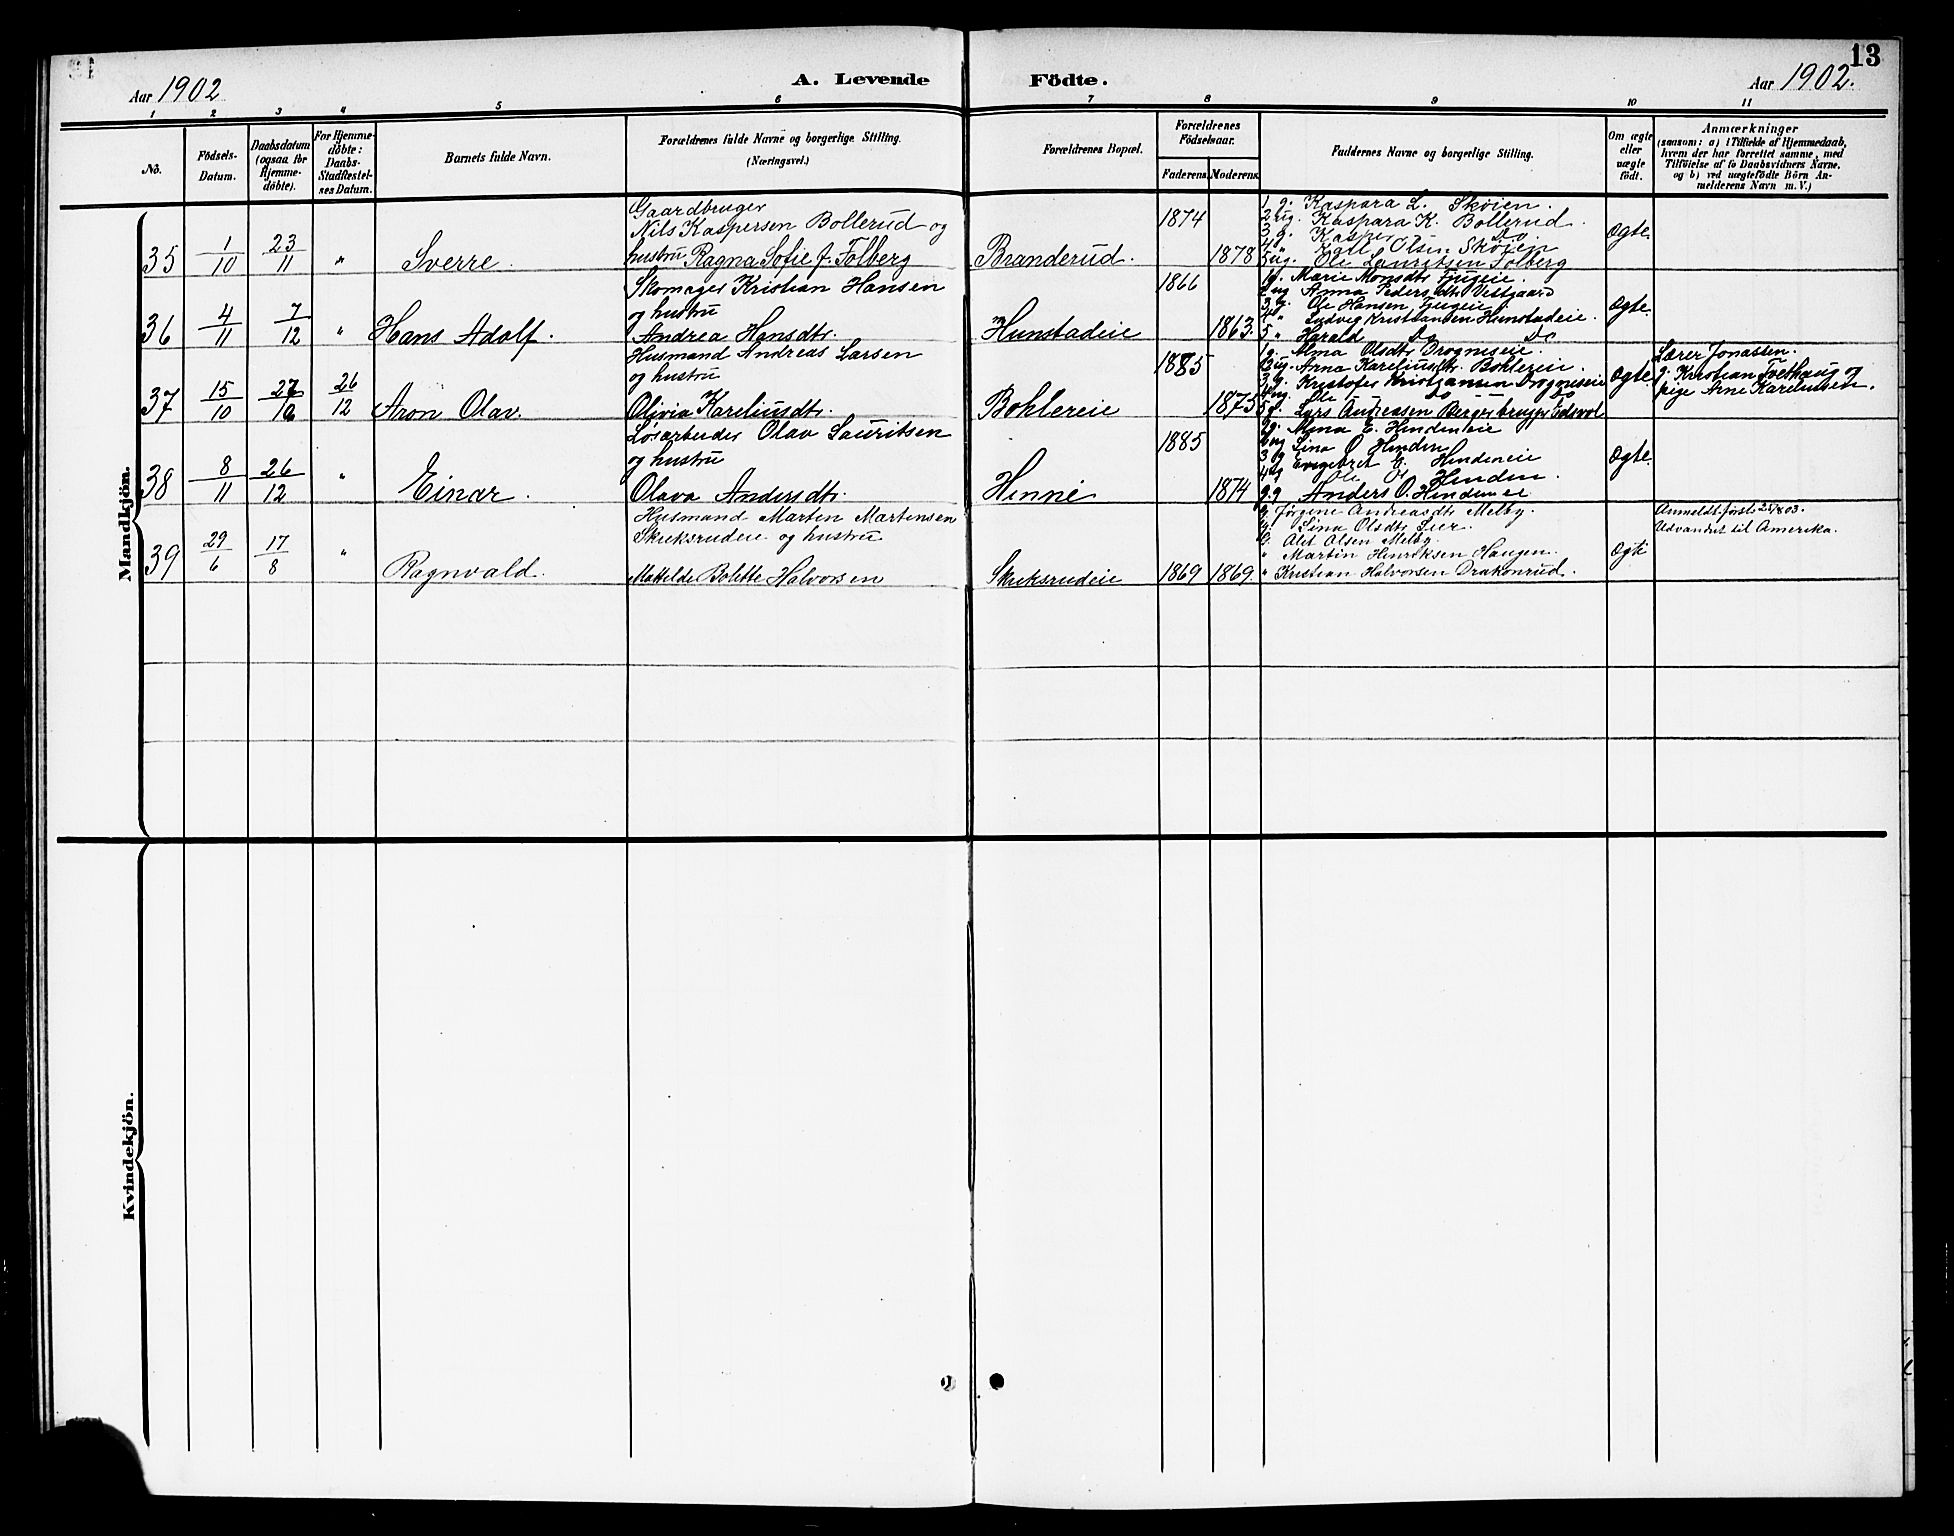 13
Aar 1902
A. Levende Födte.
Aar 1902.
1 2 3 4 5 6 7 8 9 10 11
No.
Födsels-
Datum.
Daabsdatum
(ogsaa for
Hjemme-
döbte).
For Hjemme-
döbte:
Daabs-
Stadfæstel-
ses Datum.
Barnets fulde Navn.
Forældrenes fulde Navne og borgerlige Stilling.
(Næringsvei.)
Forældrenes Bopæl.
Forældrenes
Födselsaar.
Faderens. Moderens.
Faddernes Navne og borgerlige Stilling.
Om ægte
eller
uægte
födt.
Anmærkninger
(saasom: a) i Tilfælde af Hjemmedaab,
hvem der har forrettet samme, med
Tilföielse af to Daabsvidners Navne.
og b) ved uægtefödte Börn An-
melderens Navn m. V.)
Mandkjön.
35 1/10 23/11 " Sverre.
Gaardbruger
Nils Kaspersen Bollerud og
hustru Ragna Sofie f. Tolberg
Branderud. 1874 1878
1 g. Kaspara L. Skøien.
2 ug. Kaspara K. Bollerud.
3 g. Kasper " Do.
4 " Olsen Skøien
5 ug. Ole Lauritsen Tolberg
Ægte.
36 4/11 7/12 " Hans Adolf.
Skomager Kristian Hansen
og hustru
Andrea Hansdtr.
Hunstadeie 1866 1863.
1 g. Marie Monsdtr.
2 ug Anna Pedersdtr Vestgaard
3 g. Ole Hansen
4 " Ludvig Kristiansen Hunstadeie.
5 " Harald Do Do
Ægte.
37 15/10 26/12 Aron Olav.
Husmand Andreas Larsen
og hustru
Olivia Kareliusdtr.
Bohlereie 1885 1875
1 g. Alma Olsdtr Brogneseie.
2 ug. Anna Kareliusdtr. Bohlereie.
3 g. Kristofer Kristiansen
4 ug. Ole Do Do
5 g. Lars Andreasen Eidsvol
Ægte
Lærer Jonassen.
g. Kristian Tvethaug og
pige Arne Kareliussen.
38 8/11 26/12 " Einar.
Løsarbeider Olav Lauritsen
og hustru
Olava Andersdtr.
Henné 1885 1874
1 g. Alma E. Hendeneie
2 ug Lina O Henden
3 g Engebret E. Hendeneie
4 ug Ole O Henden.
g. g Anders O. Hendeneie
Ægte.
39 29/6 17/8 " Ragnvald.
Husmand Marten Martensen
Skuksrudeie og hustru
Mattelde Bolette Halvorsen
Skuksrudeie 1869 1869
g. Jørgine Andreasdtr Melby.
g. Lina Olsdtr Lier.
g. Olsen Melby.
" Martin Henriksen Haugen.
" Kristian Halvorsen Drakonrud.
Ægte
Anmeldt først 25/8 03.
Udvandret til Amerika.
Kvindekjön.